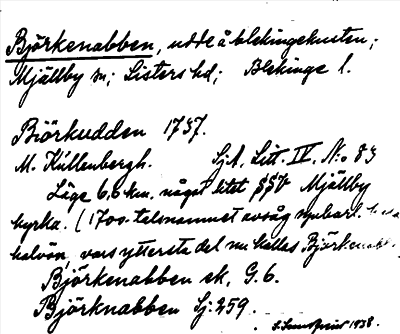 Björkenabben, udde å blekingekusten;
Mjällby sn; Listers hd; Blekinge l.
Biörkudden 1737.
M. Küllenbergh. Sj.A. Litt. IV. No 83
Läge 6,0 km. något litet SSV Mjällby
kyrka. (1700-talsnamnet avsåg uppenbart
halvön, vars yttersta del nu kallas Björkenabb
Björkenabben ek. G. 6.
Björknabben Sj. 259.
1938.